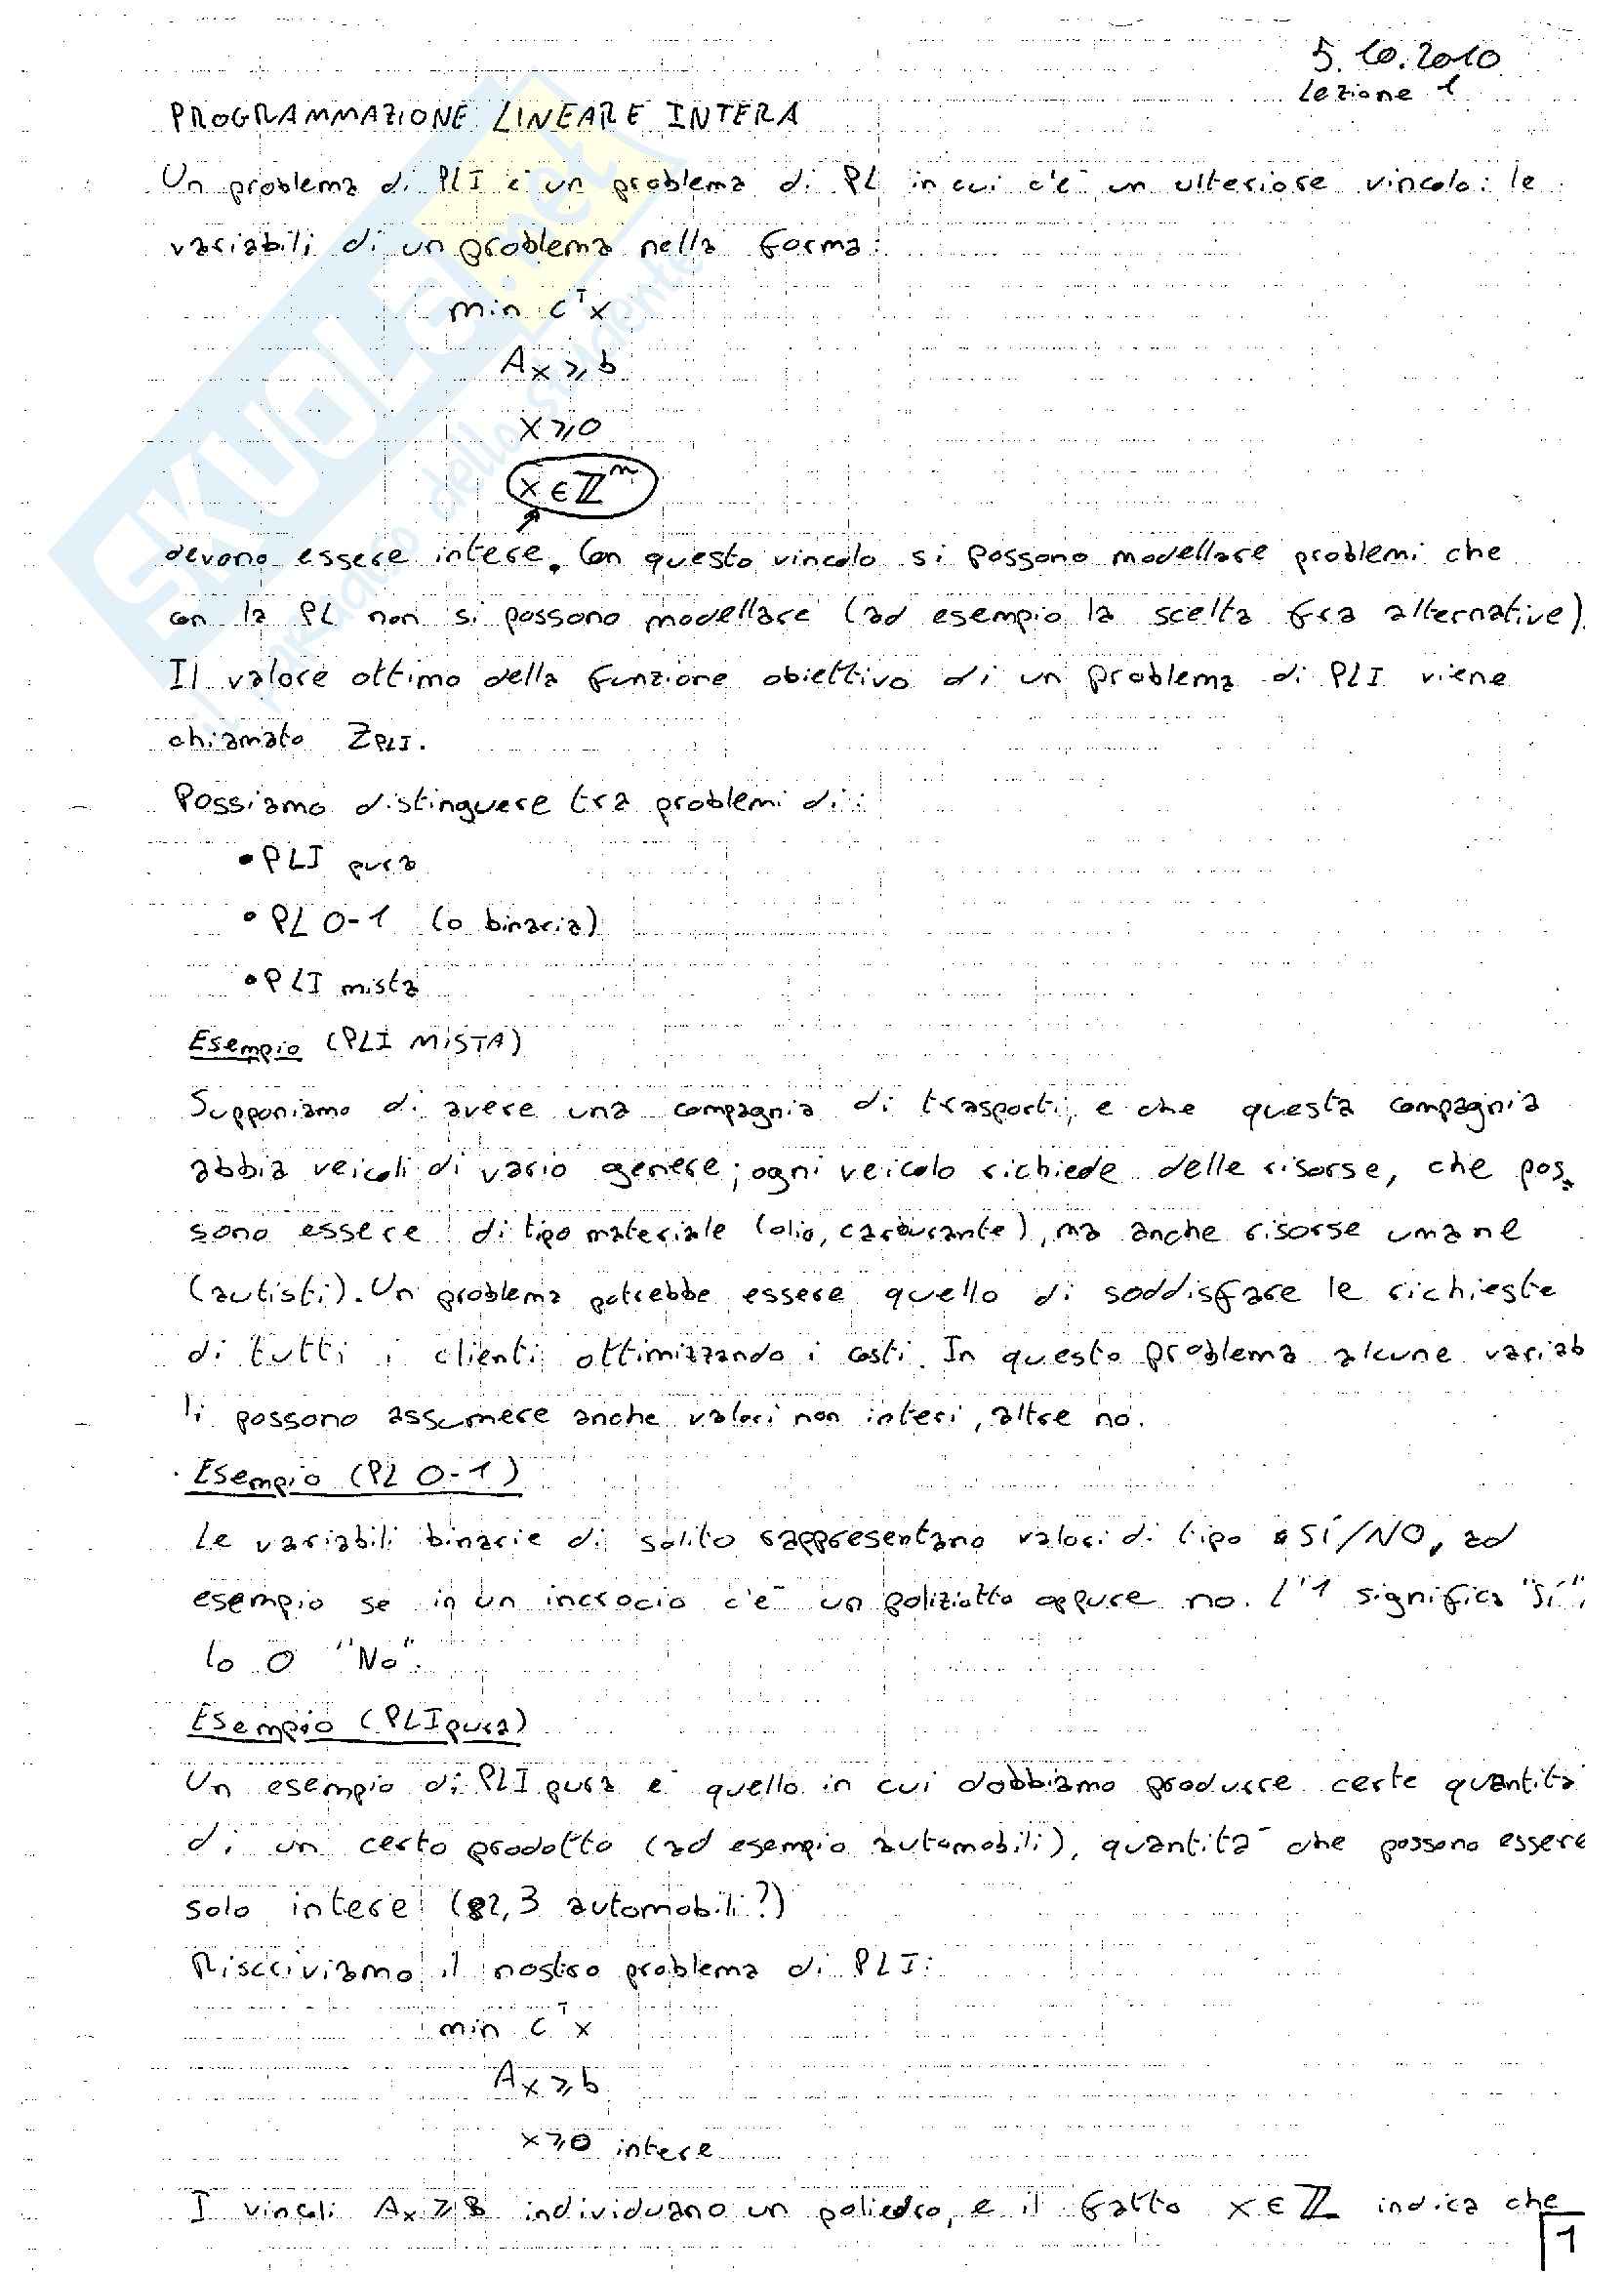 5.10.2010
Lezione 1
PROGRAMMAZIONE LINEARE INTERA
Un problema di PLI è un problema di PL in cui c'è un ulteriore vincolo: le
variabili di un problema nella forma:
min cᵀx
Ax ≥ b
x ≥ 0
x ∈ ℤⁿ
devono essere intere. Con questo vincolo si possono modellare problemi che
con la PL non si possono modellare (ad esempio la scelta fra alternative).
Il valore ottimo della funzione obiettivo di un problema di PLI viene
chiamato Z_PLI.
Possiamo distinguere tra problemi di:
• PLI pura
• PL 0-1 (o binaria)
• PLI mista
Esempio (PLI MISTA)
Supponiamo di avere una compagnia di trasporti, e che questa compagnia
abbia veicoli di vario genere; ogni veicolo richiede delle risorse, che pos-
sono essere di tipo materiale (olio, carburante), ma anche risorse umane
(autisti). Un problema potrebbe essere quello di soddisfare le richieste
di tutti i clienti ottimizzando i costi. In questo problema alcune variab
li possono assumere anche valori non interi, altre no.
Esempio (PL 0-1)
Le variabili binarie di solito rappresentano valori di tipo SÍ/NO, ad
esempio se in un incrocio c'è un poliziotto oppure no. L'1 significa "Sí",
lo 0 "No".
Esempio (PLI pura)
Un esempio di PLI pura è quello in cui dobbiamo produrre certe quantità
di un certo prodotto (ad esempio automobili), quantità che possono essere
solo intere (82,3 automobili?)
Riscriviamo il nostro problema di PLI:
min cᵀx
Ax ≥ b
x ≥ 0 intere
I vincoli Ax ≥ B individuano un poliedro, e il fatto x ∈ ℤ indica che
1
SKUOLA.net
il paradiso dello studente